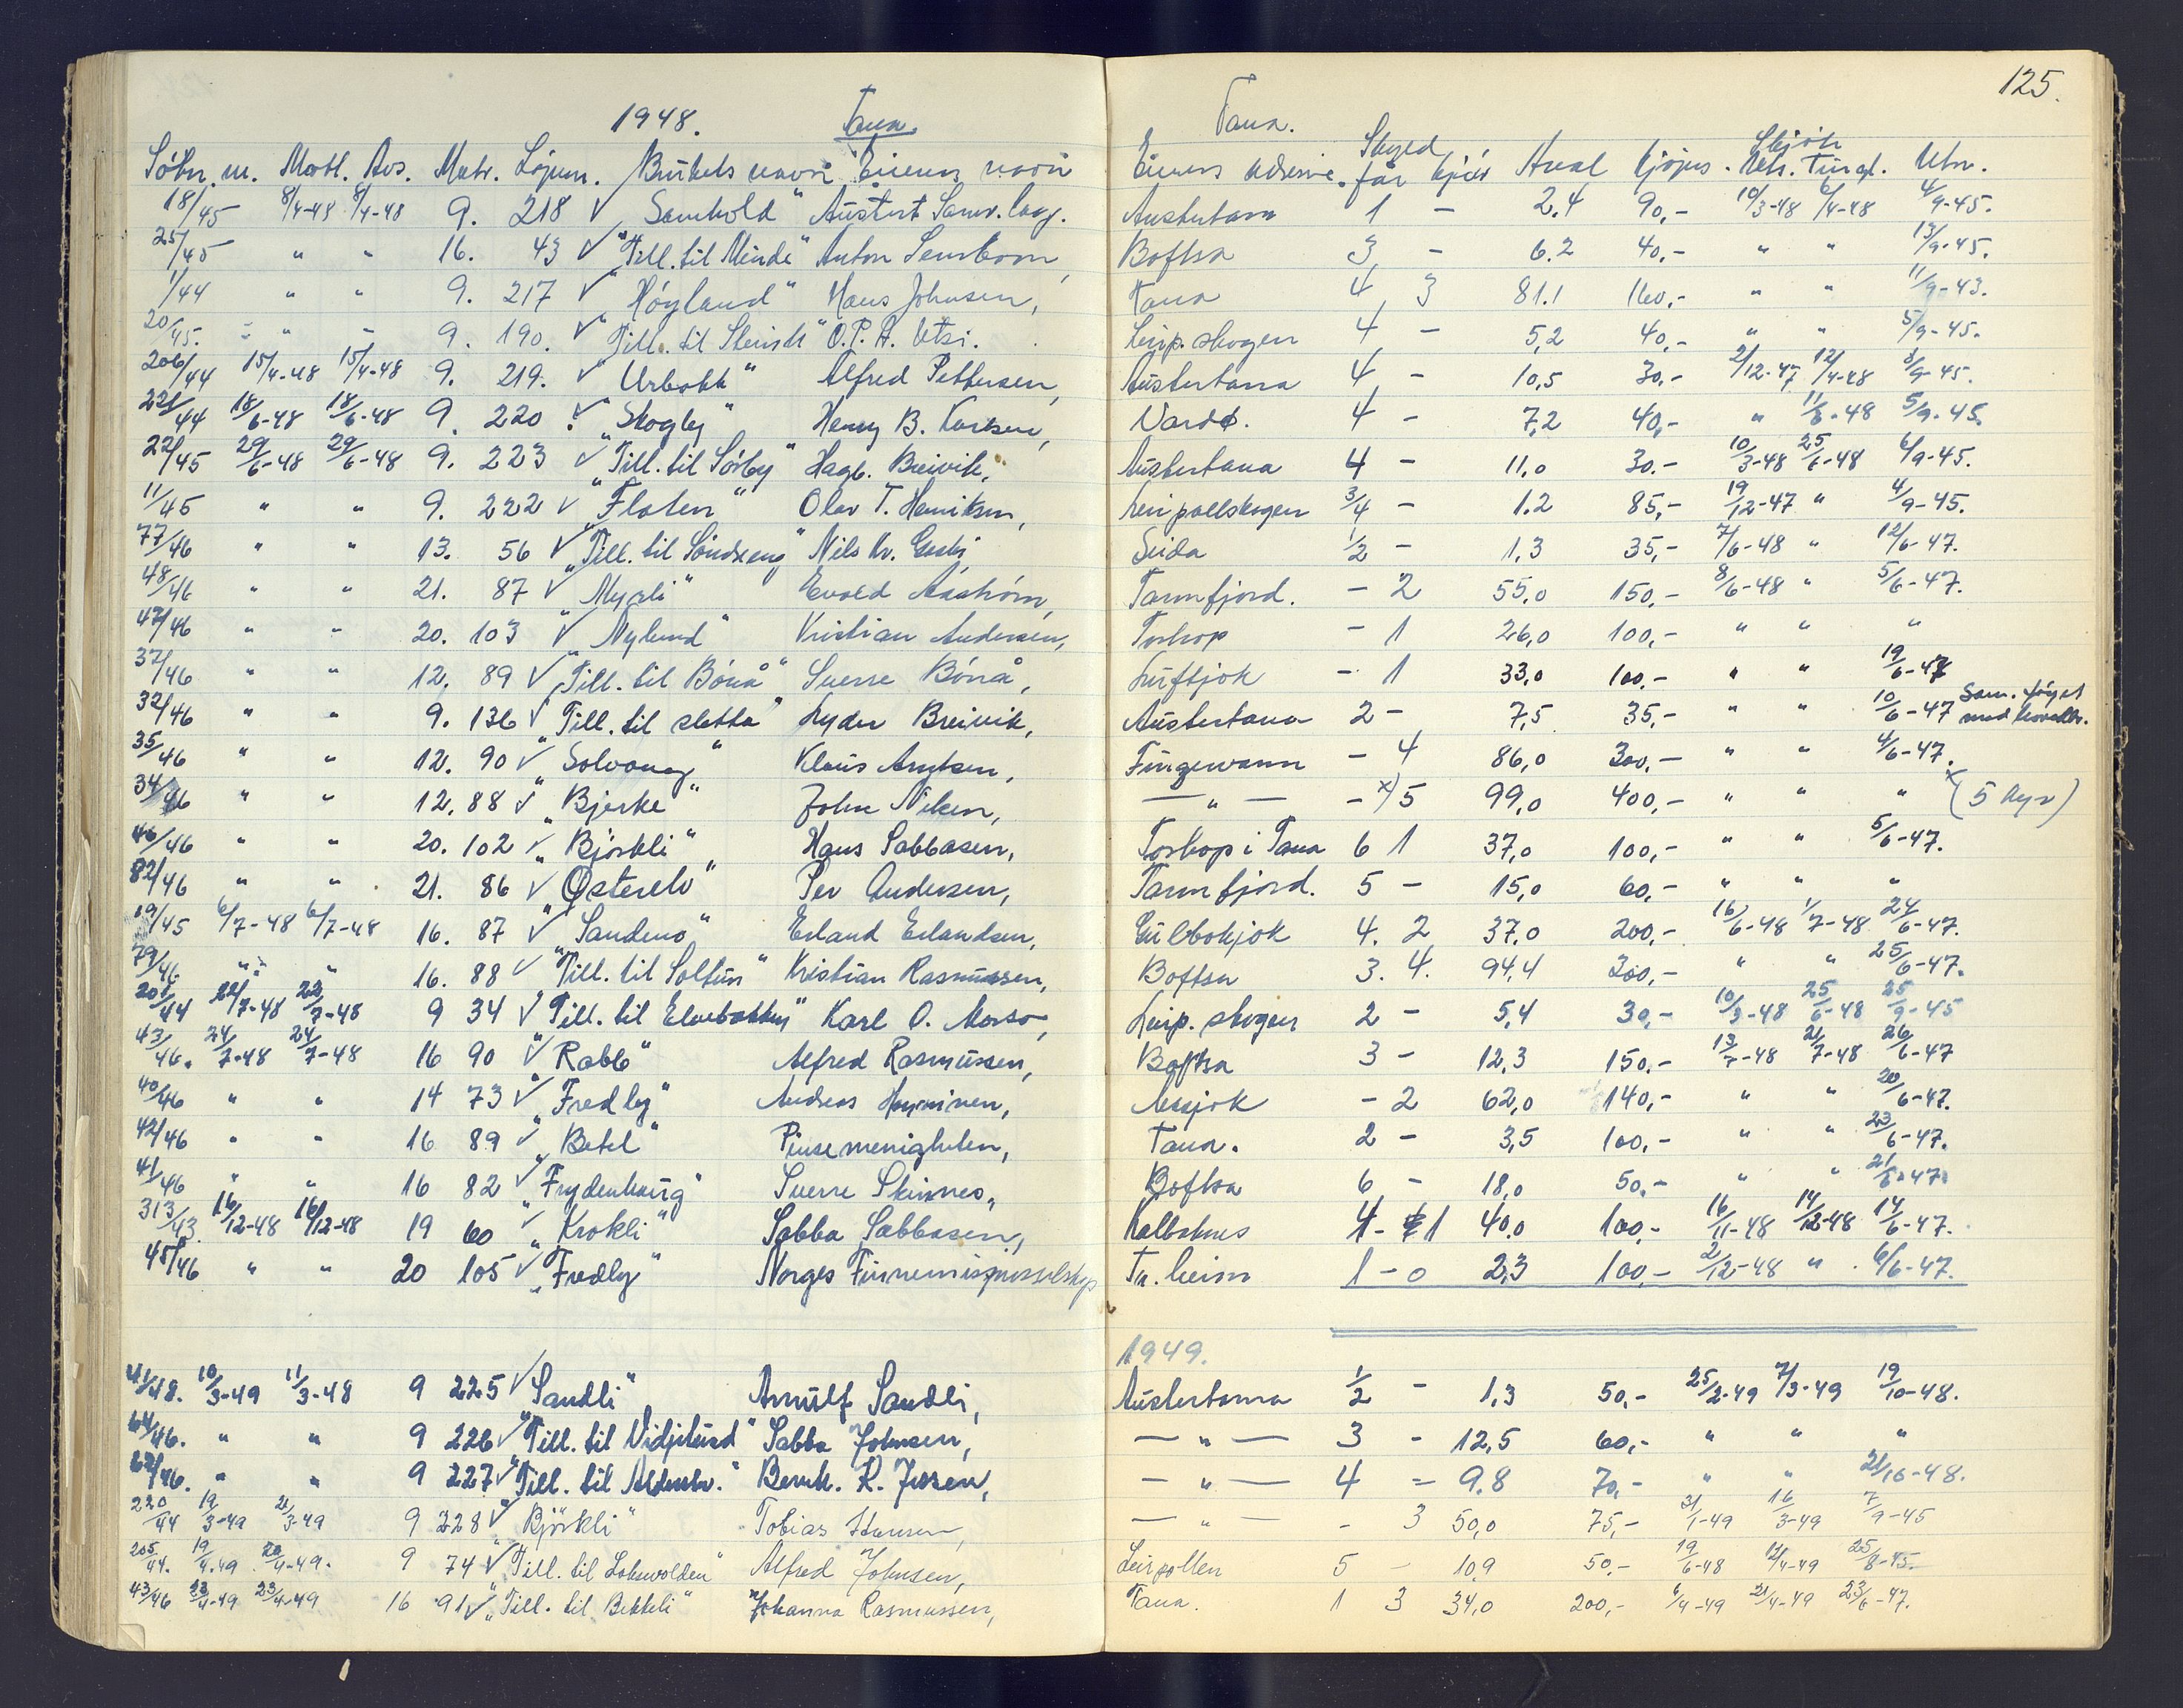 125.
1948. Tana. Tana.
Skyed Skjøte
Matr. Løpnr. Brukets navn Eierens navn Eierens adresse. før Areal
18/45 8/4-48 8/4-48 9. 218 ✓ "Samhold" Austert Samv.lag. Austertana 1 - 2.4 90,- 10/3-48 6/4-48 4/9-45.
25/45 " " 16. 43 ✓ "Till. til Minde" Anton Boftsa 3 - 6.2 40,- " " 13/9-45.
1/44 " " 9. 217 ✓ "Høyland" Hans Johnsen, Tana 4 3 81.1 160,- " " 11/9-43.
20/45. " " 9. 190. ✓ "Till. til O.P.A. Utsi. Leirp.skogen 4 - 5,2 40,- " " 5/9-45.
206/44 15/4-48 15/4-48 9. 219. ✓ "Urbakk" Alfred Pettersen, Austertana 4 - 10,5 30,- 2/12-47 12/4-48 8/9-45.
221/44 18/6-48 18/6-48 9. 220 ✓ "Skogly" Henry B. Karlsen, Vardø. 4 - 7,2 40,- " 11/6-48 5/9-45.
22/45 29/6-48 29/6-48 9. 223 ✓ "Till. til Sørby" Hagb. Breivik, Austertana 4 - 11,0 30.- 10/3-48 25/6-48 6/9-45.
11/45 " " 9. 222 ✓ "Flaten" Olav T. Henriksen, Leirpollskogen 3/4 - 1.2 85,- 19/12-47 " 4/9-45.
77/46 " " 13. 56 ✓ "Till. til Søndreeng" Nils Kr. Seida 1/2 - 1,3 35,- 7/6-48 " 12/6-47.
48/46 " " 21. 87 ✓ "Myrli" Evald Aastrøm, Tarmfjord. - 2 55,0 150,- 8/6-48 " 5/6-47.
47/46 " " 20. 103 ✓ "Nylund" Kristian Andersen, Torhop - 1 26,0 100,- " " "
37/46 " " 12. 89 ✓ "Till. til Bønå" Sverre Bønå, Luftjok - 1 33,0 100,- " " 19/6-47
32/46 " " 9. 136 ✓ "Till. til sletta" Lyder Breivik, Austertana 2 - 7,5 35,- " " 10/6-47 Sam. føyet
med hovedbr.
35/46 " " 12. 90 ✓ "Solvang" Klaus Arntsen, Fingervann - 4 86,0 300,- " " 4/6-47.
34/46 " " 12. 88 ✓ "Bjerke" John Nilsen, — " — - x) 5 99,0 400,- " " " x (5 kyr)
46/46 " " 20. 102 ✓ "Bjørkli" Hans Sabbasen, Torhop i Tana 6 1 37,0 100,- " " 5/6-47.
82/46 " " 21. 86 ✓ "Østerelv" Per Andersen, Tarmfjord. 5 - 15,0 60,- " " "
19/45 6/7-48 6/7-48 16. 87 ✓ "Sandmo" Erland Erlandsen, Gulbokjok 4. 2 37,0 200,- 16/6-48 1/7-48 24/6-47.
79/46. " " 16. 88 ✓ "Till. til Soltun" Kristian Rasmussen, Boftsa 3. 4. 94,4 300,- " " 25/6-47.
201/44 22/7-48 22/7-48 9 34 ✓ "Till. til Elvebakken" Karl O. Morso, Leirp. skogen 2 - 5,4 30,- 10/3-48 25/6-48 25/9-45
43/46. 24/7-48 24/7-48 16 90 ✓ "Rabb" Alfred Rasmussen, Boftsa 3 - 12,3 150,- 13/7-48 21/7-48 26/6-47
40/46 " " 14 73 ✓ "Fredly" Andreas Hyrninen, Masjok - 2 62,0 140,- " " 20/6-47.
42/46 " " 16 89 ✓ "Betel" Pinsemenigheten, Tana. 2 - 3,5 100,- " " 23/6-47.
41/46 " " 16 82 ✓ "Frydenhaug" Sverre Steinnes, Boftsa 6 - 18,0 50,- " " 21/6-47.
313/43. 16/12-48 16/12-48 19 60 ✓ "Krokli" Sabba Sabbasen, Kalbaknes 4 - 1 40,0 100,- 16/11-48 14/12-48 14/6-47.
45/46 " " 20 105 ✓ "Fredly" Norges Finnemisjonsselskap Tr.heim 1 - 0 2,3 100,- 2/12-48 " 6/6-47.
1949.
41/48. 10/3-49 11/3-48 9 225 ✓ "Sandli" Arnulf Sandli, Austertana 1/2 - 1,3 50,- 25/2-49 7/3-49 19/10-48.
64/46. " " 9 226 ✓ "Till. til Vidjelund" Sabba Johnsen, — " — 3 - 12,5 60,- " " "
62/46. " " 9 227 ✓ "Till. til Aldersbr." Bernh. R. Jessen, — " — 4 - 9.8 70,- " " 21/10-48.
220/44 19/3-49 21/3-49 9 228 ✓ "Bjørkli" Tobias Hansen, — " — - 3 50,0 75,- 31/1-49 16/3-49 7/9-45
205/44. 19/4.49 20/4-49. 9 74 ✓ "Till. til Lakevolden" Alfred Johnsen, Leirpollen 5 - 10,9 50,- 19/6-48 12/4-49 25/8-45.
43/46 23/4-49 23/4-49 16 91 ✓ "Till. til Bekkeli" Johanna Rasmussen, Tana. 1 3 34,0 200,- 6/4-49 21/4-49 23/6-47.